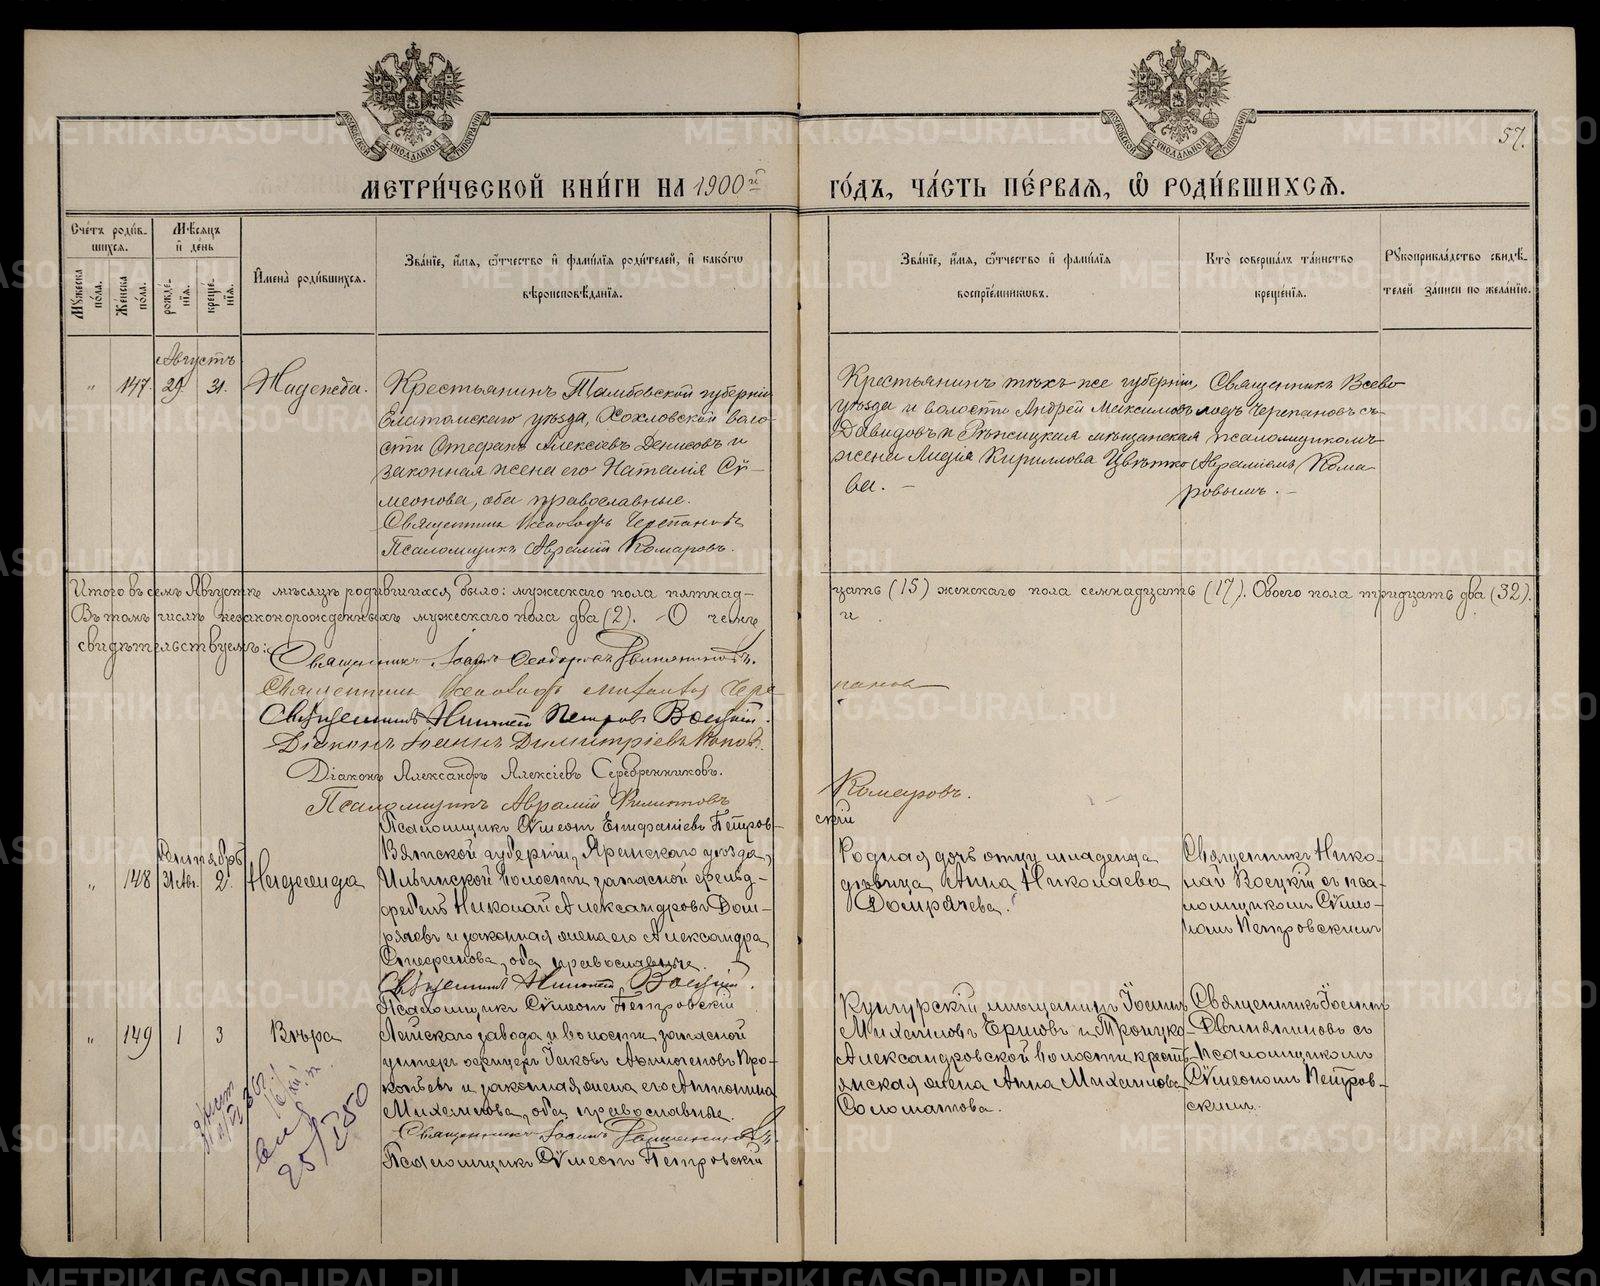 МЕТРИ́ЧЕСКОЙ КНИ́ГИ НА 1900 й
ГО́ДЪ, ЧА́СТЬ ПЕ́РВАЯ, Ѡ РОДИ́ВШИХСЯ.
57.
Сче́тъ роди́в-
шихся.
Мѣ́сяцъ
и де́нь
Му́жеска
по́ла.
Же́нска
по́ла.
рожде́-
нїя.
креще́-
нїя.
И́мена̀ роди́вшихся.
Зва́нїе, и́мя, ѻ́тчество и фами́лїя роди́телей, и како́гѡ
вѣроисповѣ́данїя.
Зва́нїе, и́мя, ѻ́тчество и фами́лїя
воспрїе́мниковъ.
Кто̀ соверша́лъ та́инство
креще́нїя.
Рукоприкла́дство свидѣ́-
телей за́писи по жела́нїю.
Августъ
" 147. 29. 31. Надежда.
Крестьянинъ Тамбовской губерніи
Елатомскаго уѣзда, Хохловской воло-
сти Стефанъ Алексѣевъ Денисовъ и
законная жена его Наталія Сѵ-
меонова, оба православные.
Священникъ Ѳеодоръ Черепановъ
Псаломщикъ Аврамій Комаровъ.
Крестьянинъ тѣхъ же губерніи,
уѣзда и волости Андрей Максимовъ
Давидовъ и Ряжицкая мѣщанская
жена Лидія Кириллова Цвѣтко
ва. –
Священникъ Всево
лодъ Черепановъ съ
псаломщикомъ
Авраміемъ Кома
ровымъ. –
Итого въ семъ Августѣ мѣсяцѣ родившихся было: мужескаго пола пятнад-
цать (15) женскаго пола семнадцать (17). Обоего пола тридцать два (32).
Въ томъ числѣ незаконорожденныхъ мужескаго пола два (2). – О чемъ
и
свидѣтельствуемъ:
Священникъ Іоаннъ Ѳеодоровъ
Священникъ Чере
панов
Священникъ Николай Петровъ Воецкій.
Діаконъ Іоаннъ Димитріевъ Поповъ.
Діаконъ Александръ Алексіевъ Серебренниковъ.
Псаломщикъ Аврамій Филиповъ
Комаровъ.
Псаломщикъ Сѵмеонъ Епифаніевъ Петров-
скій
Сентябрь
" 148 31 Авг. 2. Надежда
Вятской губерніи, Яранскаго уѣзда,
Ильинской волости запасной фельд-
фебель Николай Александровъ Дом-
рачевъ и законная жена его Александра
Стефанова, оба православные.
Священникъ Николай Воецкій.
Псаломщикъ Сѵмеонъ Петровскій
Родная дочь отцу младенца
дѣвица Анна Николаева
Домрачева.
Священникъ Нико-
лай Воецкій съ пса-
ломщикомъ Сѵмео-
номъ Петровскимъ
" 149 1 3 Вѣра
завода и волости запасной
унтеръ офицеръ Іаковъ Про-
копьевъ и законная жена его Антонина
Михаилова, оба православные.
Священникъ Іоаннъ
Псаломщикъ Сѵмеонъ Петровскій
Кунгурскій мѣщанинъ Іоаннъ
Михаиловъ Ершовъ и Троицко
Александровской волости кресть-
янская жена Анна Михаилова
Соломатова.
Священникъ Іоаннъ
съ
псаломщикомъ
Сѵмеономъ Петров-
скимъ.
25/I 50